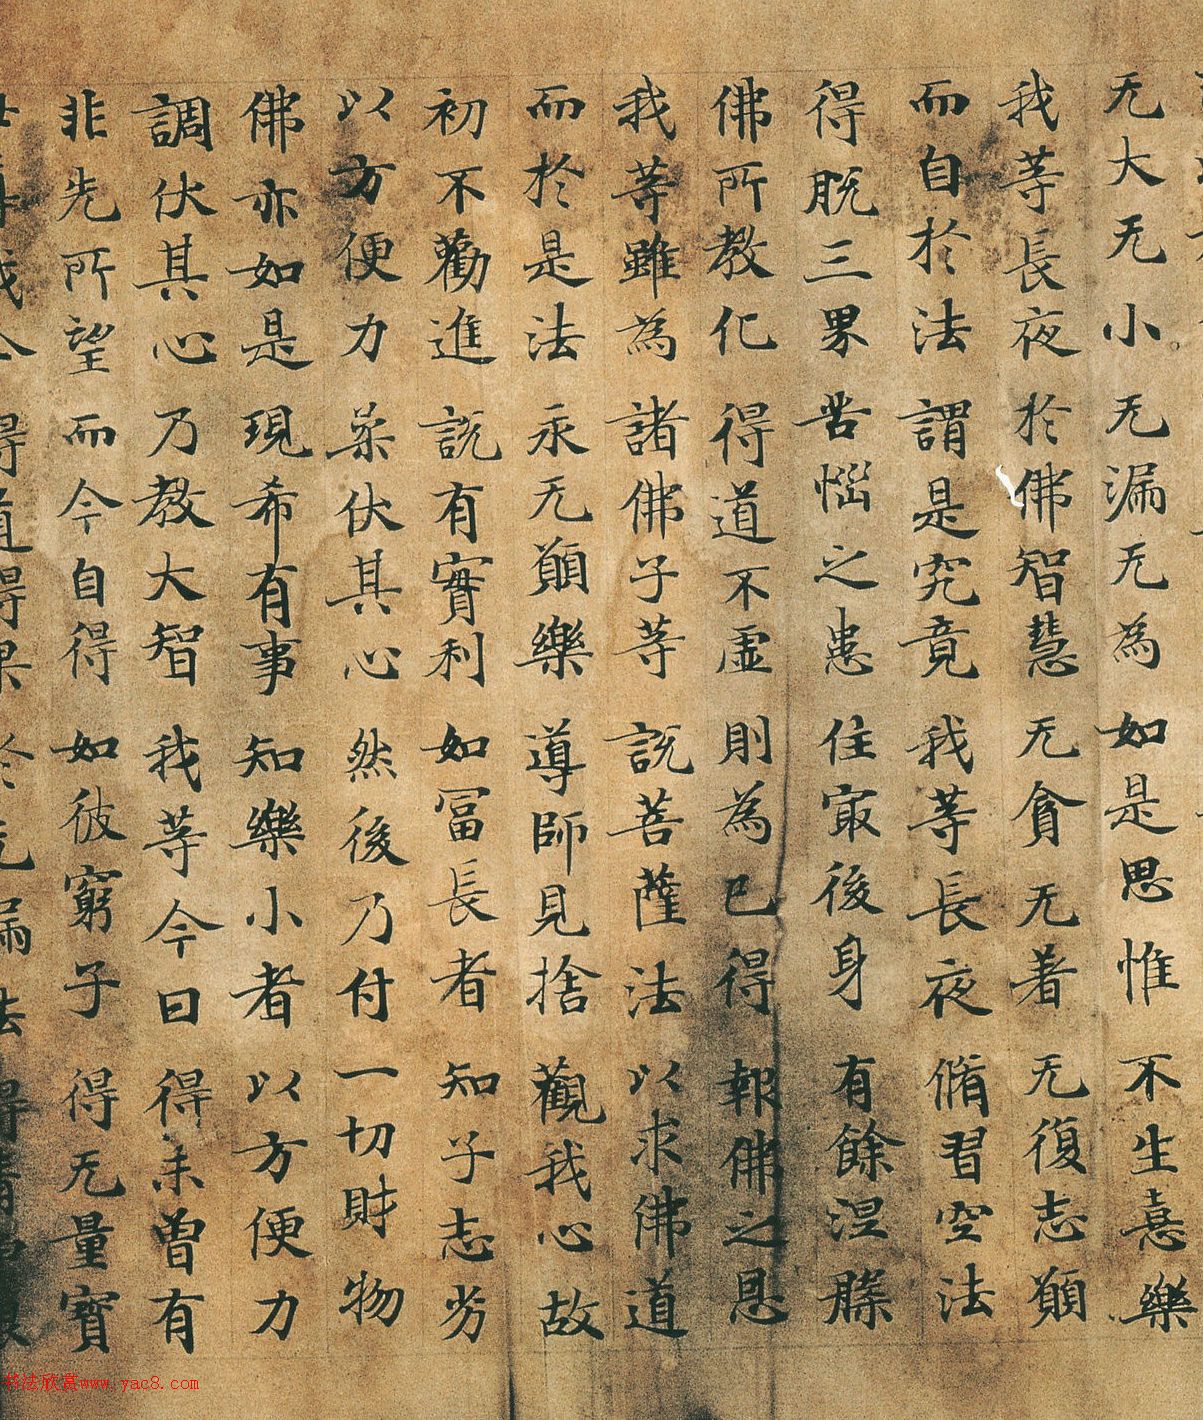 无大无小 无漏无為 如是思惟 不生憙樂
我等長夜 於佛智慧 无貪无著 无復志願
而自於法 謂是究竟 我等長夜 脩習空法
得脫三界 苦惱之患 住最後身 有餘涅槃
佛所教化 得道不虛 則為已得 報佛之恩
我等雖為 諸佛子等 說菩薩法 以求佛道
而於是法 永无願樂 導師見捨 觀我心故
初不勸進 說有實利 如富長者 知子志劣
以方便力 柔伏其心 然後乃付 一切財物
佛亦如是 現希有事 知樂小者 以方便力
調伏其心 乃教大智 我等今日 得未曾有
非先所望 而今自得 如彼窮子 得无量寶
尊我今 得道得果 於无漏法 得
书法欣赏www.yac8.com